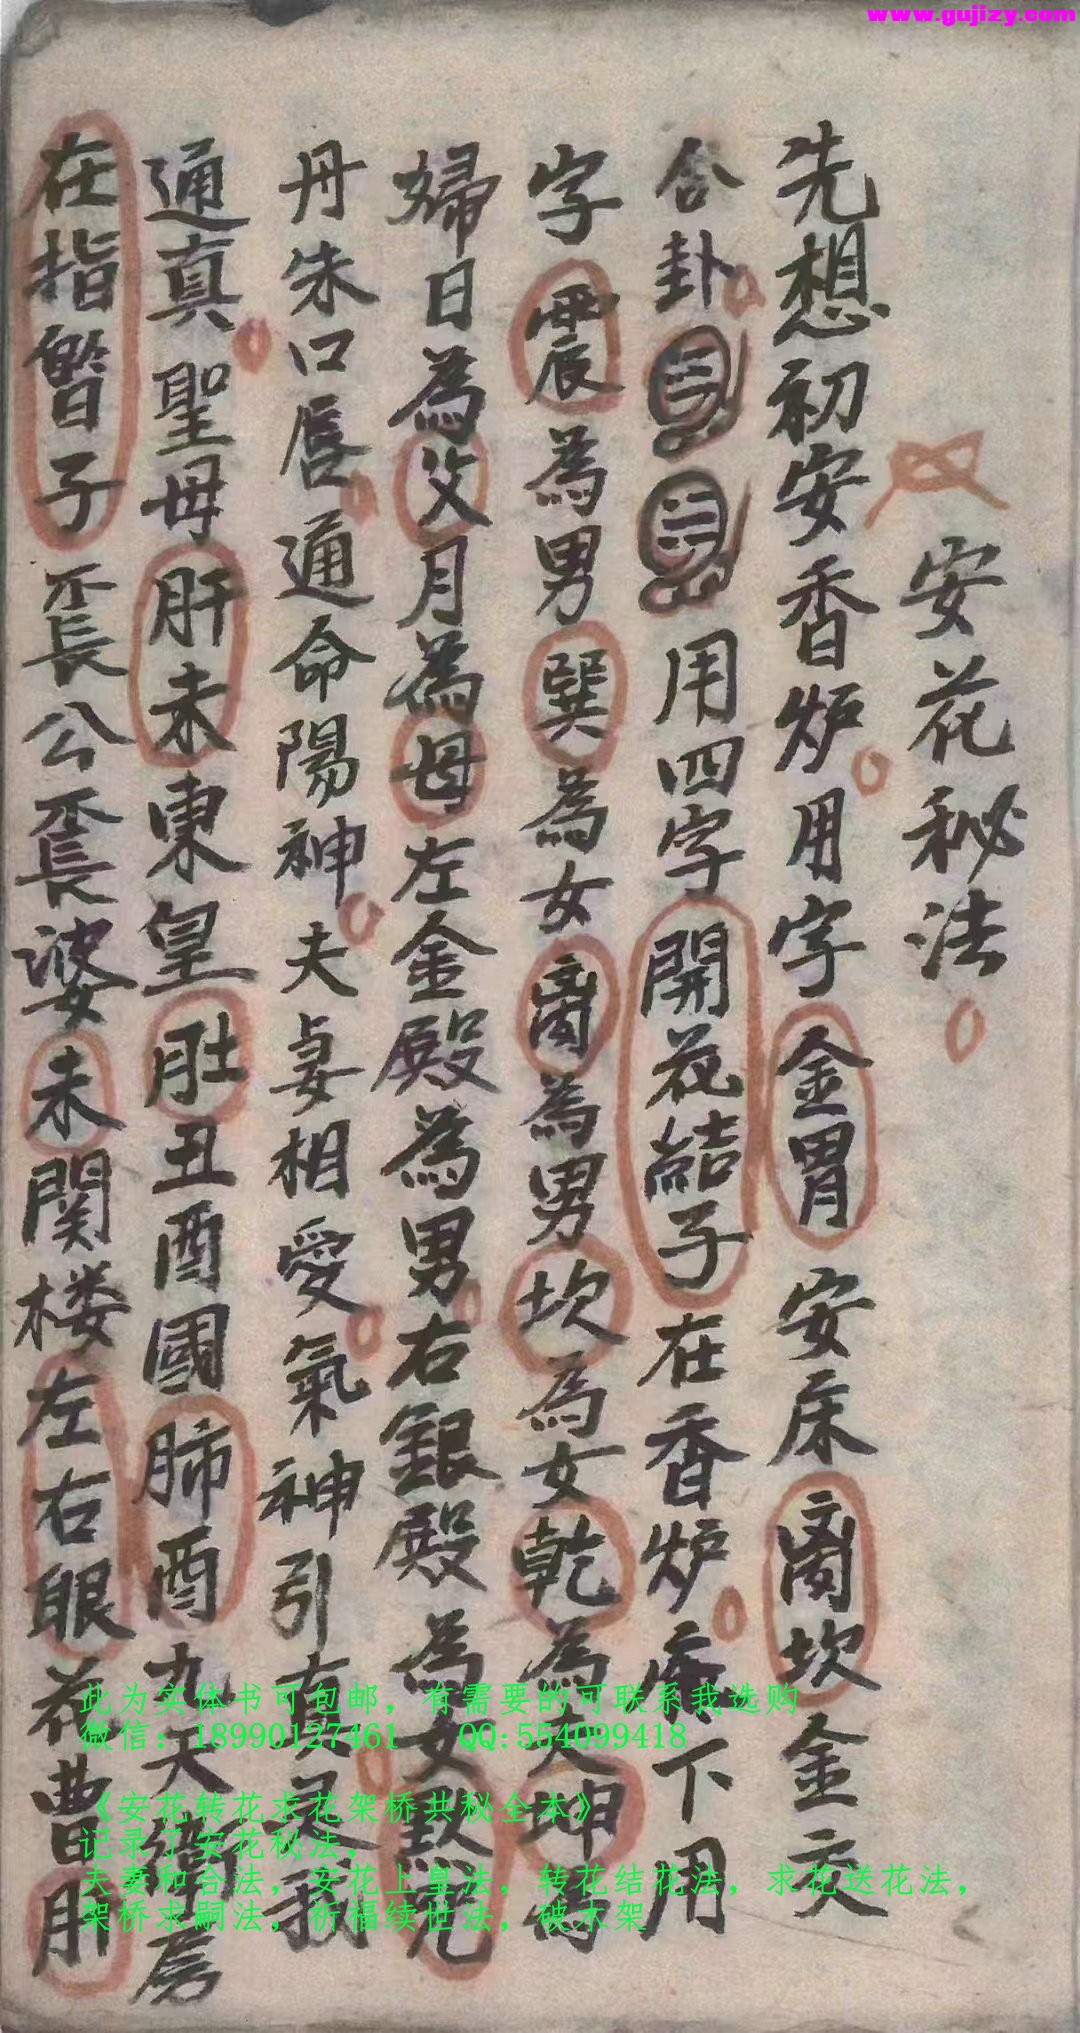 www.gujizy.com
安花秘法
先想初安香炉用字金胃安床离坎金交
合卦用四字開花結子在香炉床下用
字震為男巽為女离為男坎為女乾為夫坤為
婦日為父月為母左金殿為男右銀殿為女
丹朱口唇通命陽神夫妾相愛氣神引真
通真聖母肝未東皇肚丑酉國肺酉九天衛房
在指子公婆未関楼左右眼花曹肝
此为实体书可包邮，有需要的可联系我选购
微信：18990127461 QQ:554099418
《安花转花求花架桥共秘全本》
记录了安花秘法，
夫妻和合法，安花上皇法，转花结花法，求花送花法，
架桥求嗣法，祈福续世法，破木架